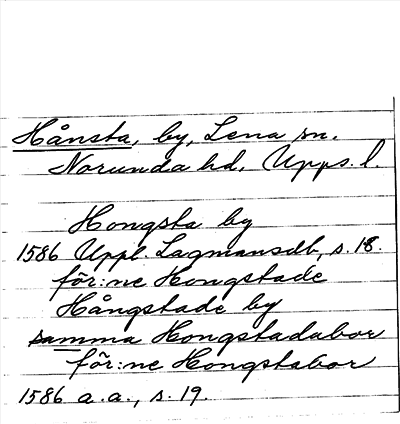 Hånsta, by, Lena sn.
Norunda hd, Upps. l.
Hongsta by
1586 Uppl. Lagmansdb, s. 18.
för:ne Hongstade
Hångstade by
samma Hongstadabor
för:ne Hongstabor
1586 a.a., s. 19.